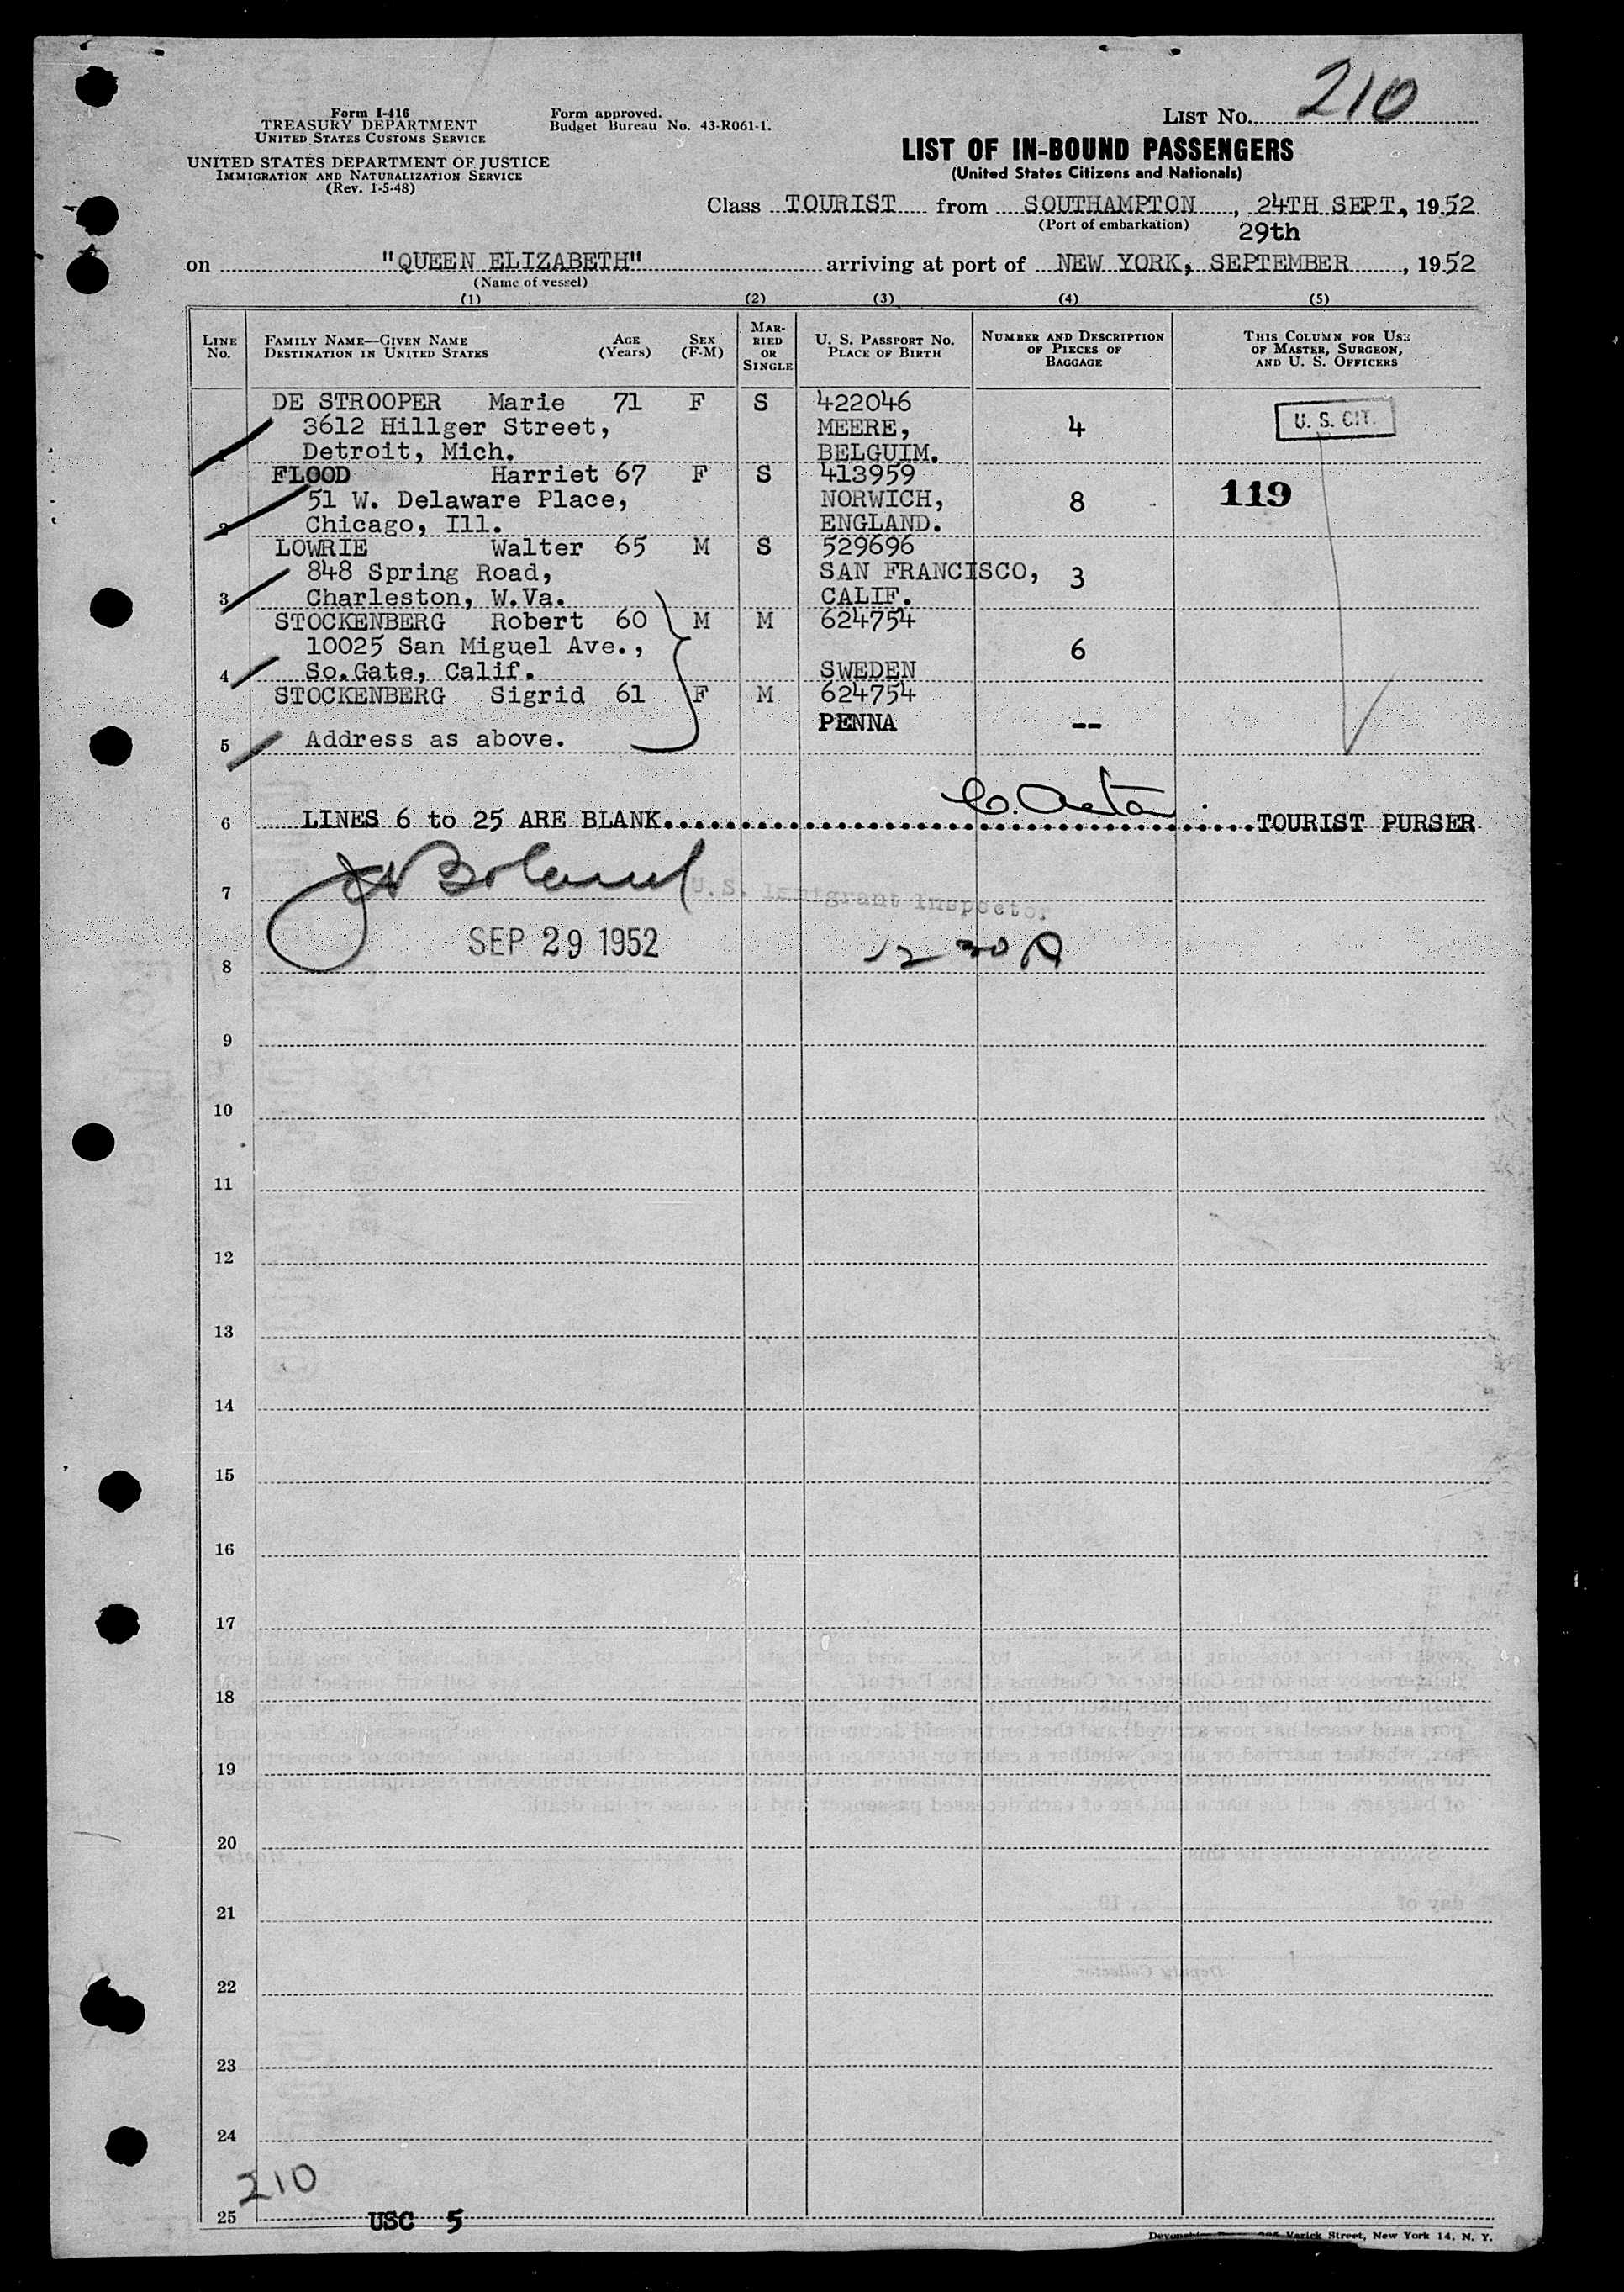 Form I-416
TREASURY DEPARTMENT
UNITED STATES CUSTOMS SERVICE
UNITED STATES DEPARTMENT OF JUSTICE
IMMIGRATION AND NATURALIZATION SERVICE
(Rev. 1-5-48)
Form approved.
Budget Bureau No. 43-R061-1.
LIST No. 210
LIST OF IN-BOUND PASSENGERS
(United States Citizens and Nationals)
Class TOURIST from SOUTHAMPTON, 24TH SEPT, 1952
(Port of embarkation)
29th
on "QUEEN ELIZABETH" arriving at port of NEW YORK, SEPTEMBER, 1952
(Name of vessel)
(1) (2) (3) (4) (5)
LINE No.
FAMILY NAME—GIVEN NAME
DESTINATION IN UNITED STATES
AGE (Years)
SEX (F-M)
MARRIED OR SINGLE
U. S. PASSPORT NO.
PLACE OF BIRTH
NUMBER AND DESCRIPTION OF PIECES OF BAGGAGE
THIS COLUMN FOR USE OF MASTER, SURGEON, AND U. S. OFFICERS
DE STROOPER Marie 71 F S 422046
3612 Hillger Street, MEERE, 4 U. S. CIT.
1 Detroit, Mich. BELGUIM.
FLOOD Harriet 67 F S 413959
51 W. Delaware Place, NORWICH, 8 119
2 Chicago, Ill. ENGLAND.
LOWRIE Walter 65 M S 529696
848 Spring Road, SAN FRANCISCO, 3
3 Charleston, W.Va. CALIF.
STOCKENBERG Robert 60 M M 624754
10025 San Miguel Ave., 6
4 So.Gate, Calif. SWEDEN
STOCKENBERG Sigrid 61 F M 624754
PENNA --
5 Address as above.
6 LINES 6 to 25 ARE BLANK. TOURIST PURSER
7 U.S. Immigrant Inspector
SEP 29 1952 12 30 A
8
9
10
11
12
13
14
15
16
17
18
19
20
21
22
23
24
210
25 USC 5
Varick Street, New York 14, N. Y.